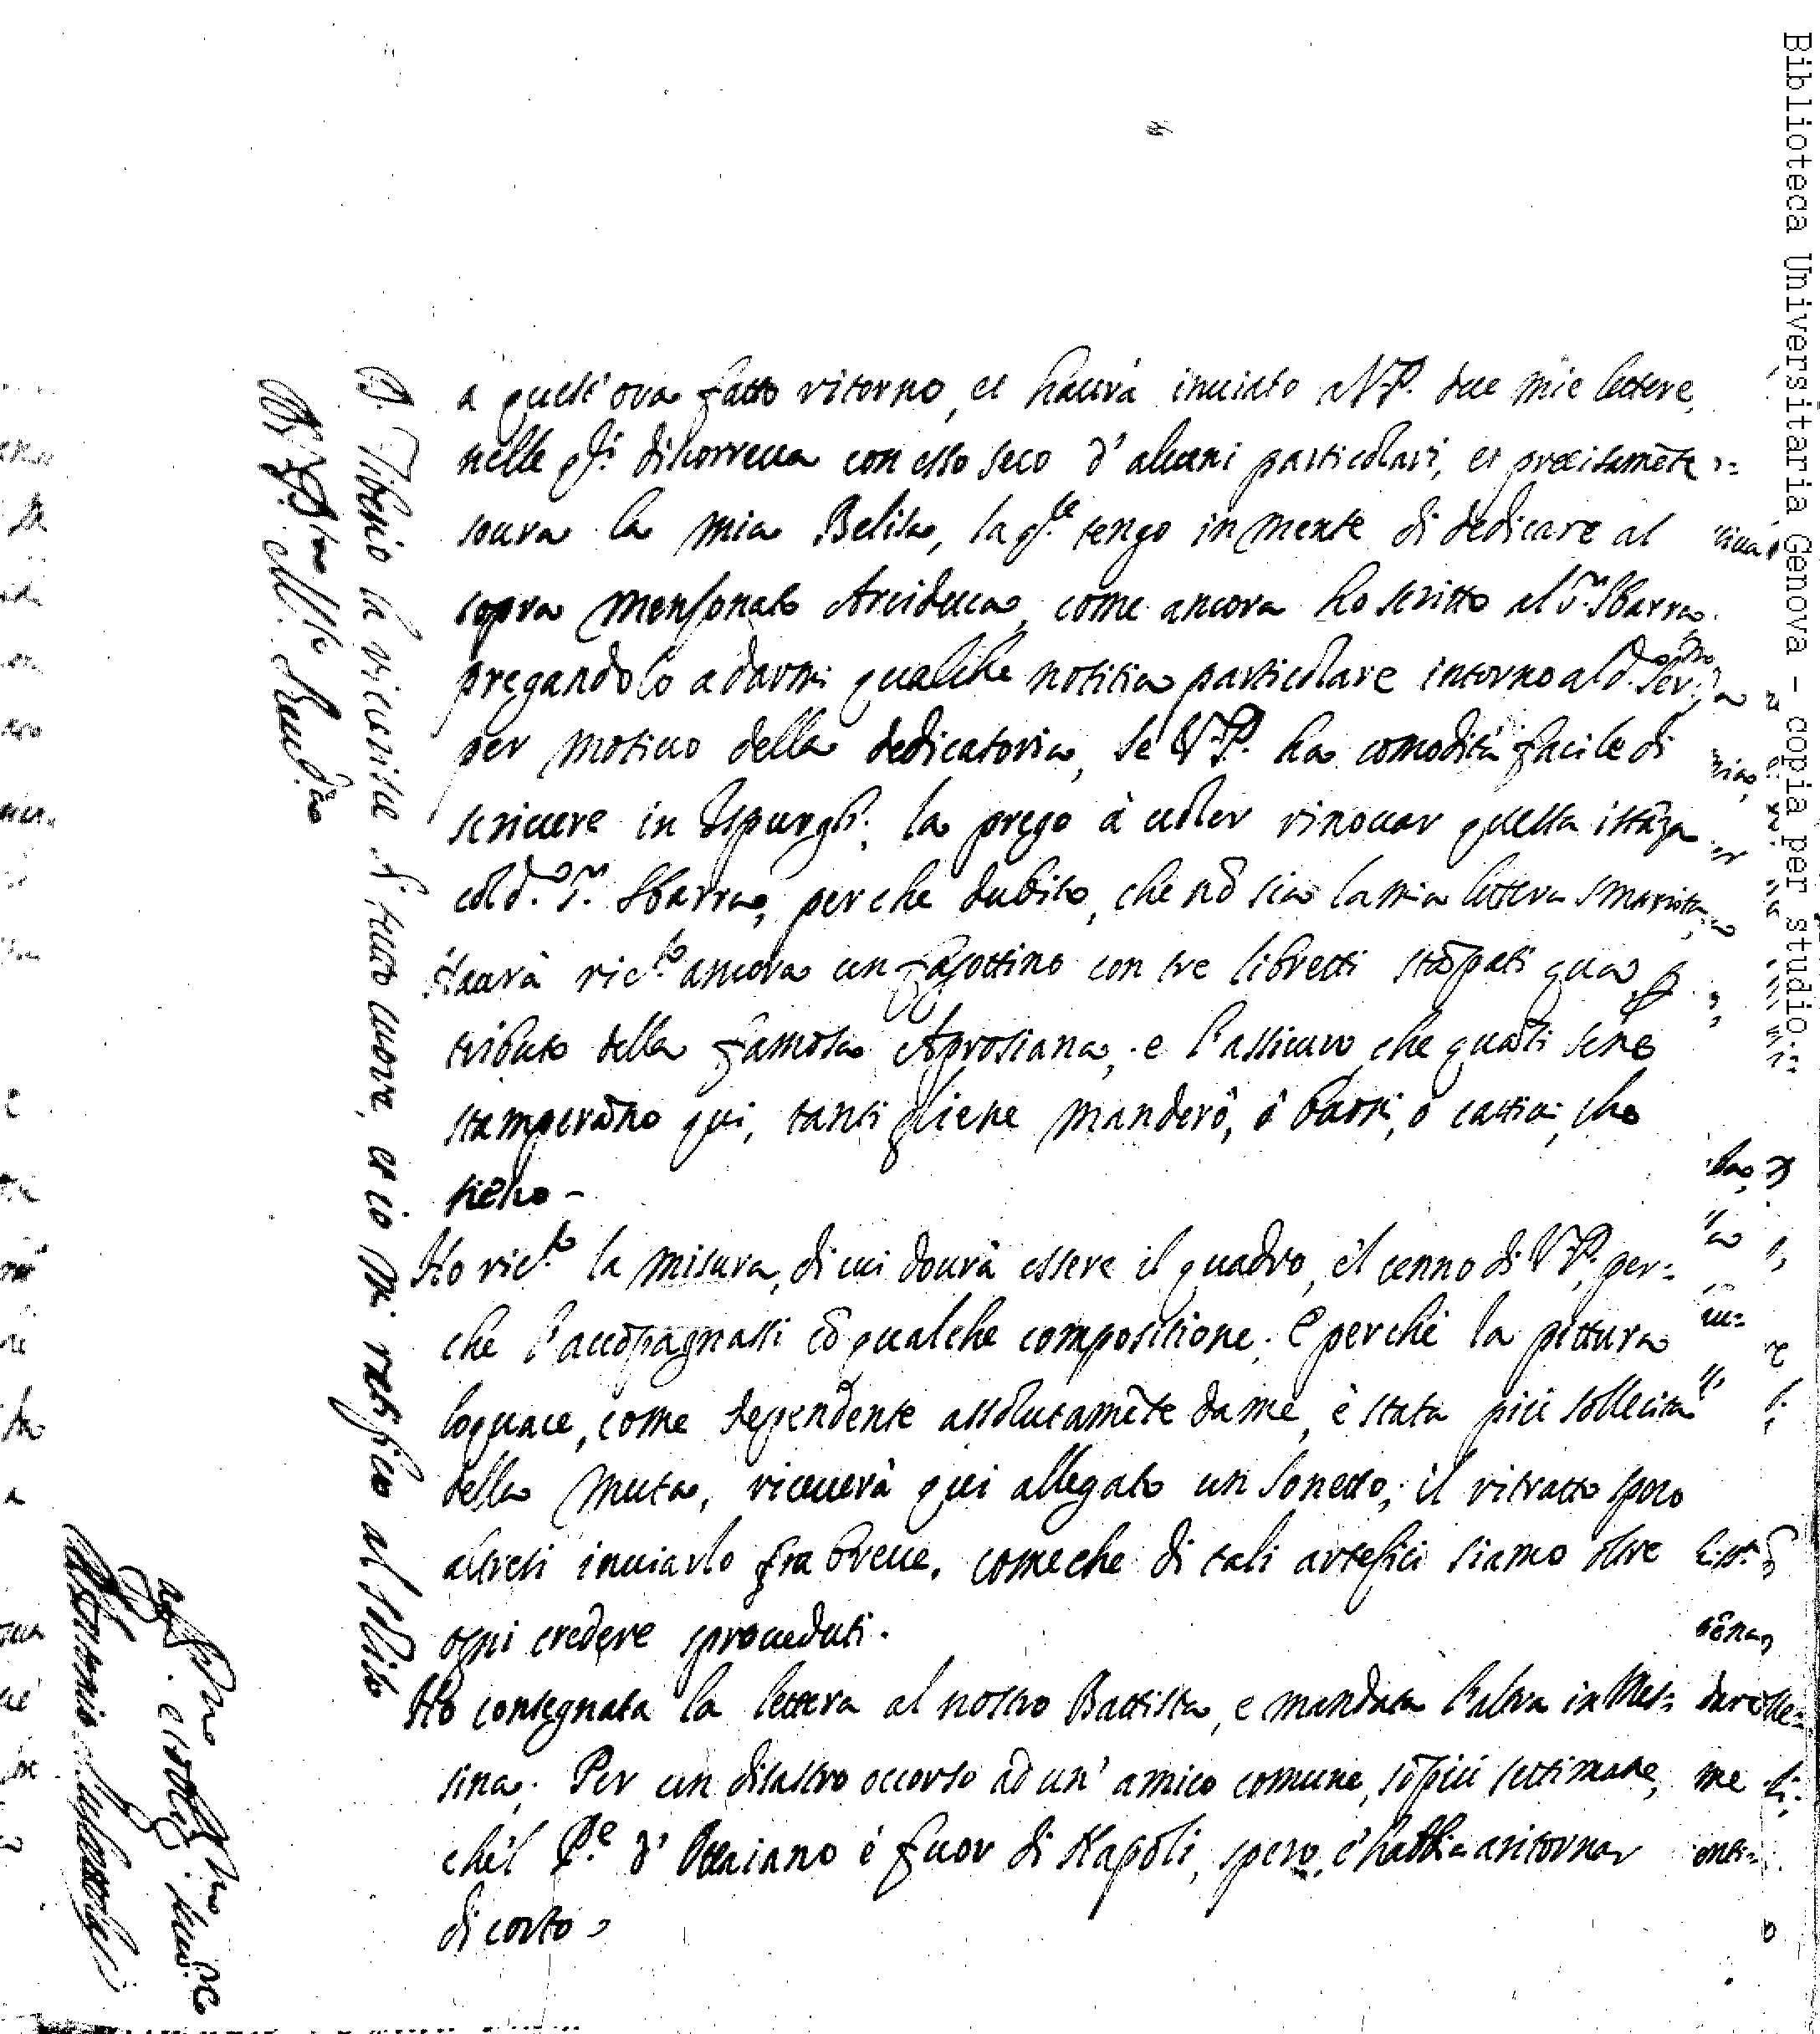 a quest'ora fatto ritorno, et haurà inuiato à V.P. due mie lettere,
nelle q.li discorreua con esso seco d'alcuni particolari, et precisamēte
soura la mia Belisa, la q.le tengo in mente di dedicare al
sopra mensonato Arciduca, come ancora ho scritto al S.r Sbarra
pregandolo a darmi qualche notitia particolare intorno al d.o Ser.mo
per motiuo della dedicatoria, se V.P. ha comodità facile di
scriuere in Ispurgh: la prego à uoler rinouar questa istāza
col d.o S.r Sbarra, perche dubito, che nō sia la mia lettera smarrita,
Haurà ric.to ancora un fagottino con tre libretti stāpati qua p
tributo della famosa Aprosiana, e l'assicuro, che quāti se ne
stamperāno qui, tanti gliene manderò, ò buoni, ò cattiui, che
sieno-
Ho ric.to la misura, di cui dourà essere il quadro, e'l cenno di V.P. per=
che l'accōpagnassi cō qualche compositione. E perche la pittura
loquace, come dependente assolutamēte da me, è stata più sollecita
della muta, riceuerà qui allegato un Sonetto; il ritratto spero
altresi inuiarlo fra breue, comeche di tali artefici siamo oltre
ogni credere sproueduti.
Ho consegnata la lettera al nostro Battista, e mandata l'altra in Mes=
sina. Per un disastro occorso ad un' amico comune, sō più settimane,
che'l P.e d'Ottaiano è fuor di Napoli, spero, c'habbia a ritornar
di corto
D. Tiberio la riuerisce di tutto cuore, et io mi ratifico al solito
Di V.P. M.to Reu.da
Biblioteca Universitaria Genova - copia per studio.